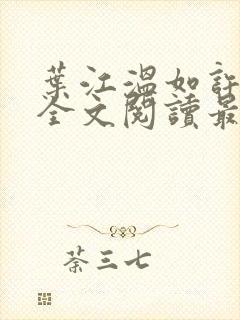 葉江溫如許
全文閱讀最
茶三七